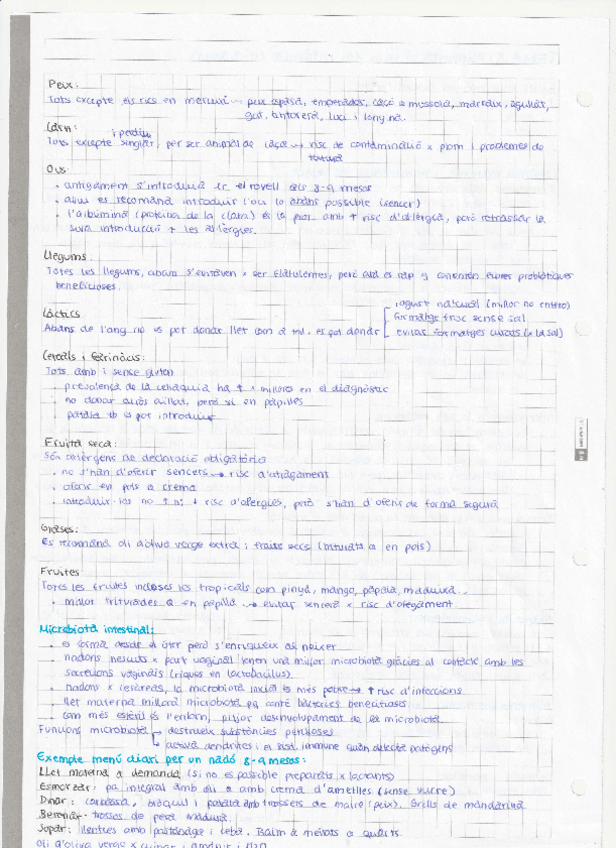 Peix:
Tots excepte els rics en mercuri → peix espasa, emperador, caçó o mussola, marraix, agullat,
gat, tintorera, luci i tonyina.
Carn: i perdiu
Tots excepte singlar, per ser animal de caça → risc de contaminació x plom i problemes de
textura
Ous
. antigament s'introduia 1r el rovell als 8-9 mesos
. avui es recomana introduir l'ou lo abans possible (sencer)
. l'albumina (proteïna de la clara) és la part amb + risc d'al·lèrgia, però retrassar la
seva introducció + les al·lèrgies.
Llegums:
Totes les llegums, abans s'evitaven x ser flatulentes, però avui es sap q contenen fibres prebiòtiques
beneficioses.
Làctics
iogurt natural (millor no entero)
formatge fresc sense sal
Abans de l'any no es pot donar llet com a tal. es pot donar
evitar formatges curats (x la sal)
Cereals i farinacis:
Tots amb i sense gluten
. prevalença de la celiaquia ha ↑ x millores en el diagnòstic
. no donar arròs aïllat, però si en papilles
. patata tb es pot introduir
Fruita seca:
Són al·lèrgens de declaració obligatòria
. no s'han d'oferir sencers → risc d'atragament
. oferir en pols o crema
. introduir-los no ↑ ni ↓ risc d'al·lèrgies, però s'han d'oferir de forma segura
Grasses:
Es recomana oli d'oliva verge extra i fruits secs (triturats o en pols)
Fruites
Totes les fruites incloses les tropicals com pinya, mango, papaia, maduixa...
. millor triturades o en papilla → evitar sencera x risc d'ofegament
Microbiota intestinal:
. es forma desde el úter però s'enriqueix al néixer
. nadons nescuts x part vaginal tenen una millor microbiota gràcies al contacte amb les
secrecions vaginals (riques en lactobacilus)
. nadons x cesàreas, la microbiota inicial és més pobre → ↑ risc d'infeccions
. llet materna millora microbiota pq conté bactèries beneficioses
. com més estèril és l'entorn, pitjor desenvolupament de la microbiota
Funcions microbiota → destrueix substàncies perilloses
→ activa dendrites i el sist. immune quan detecta patògens
Exemple menú diari per un nadó 8-9 mesos:
Llet materna a demanda (si no es possible preparats x lactants)
Esmorzar: pa integral amb oli o amb crema d'ametlles (sense sucre)
Dinar: carbassa, bròquil i patata amb trossets de maire (peix). Grills de mandarina
Berenar: trossos de pera madura
Sopar: llenties amb pastanaga i ceba. Raïm a meitats o quarts.
Oli d'oliva verge x cuinar i amanir i H2O